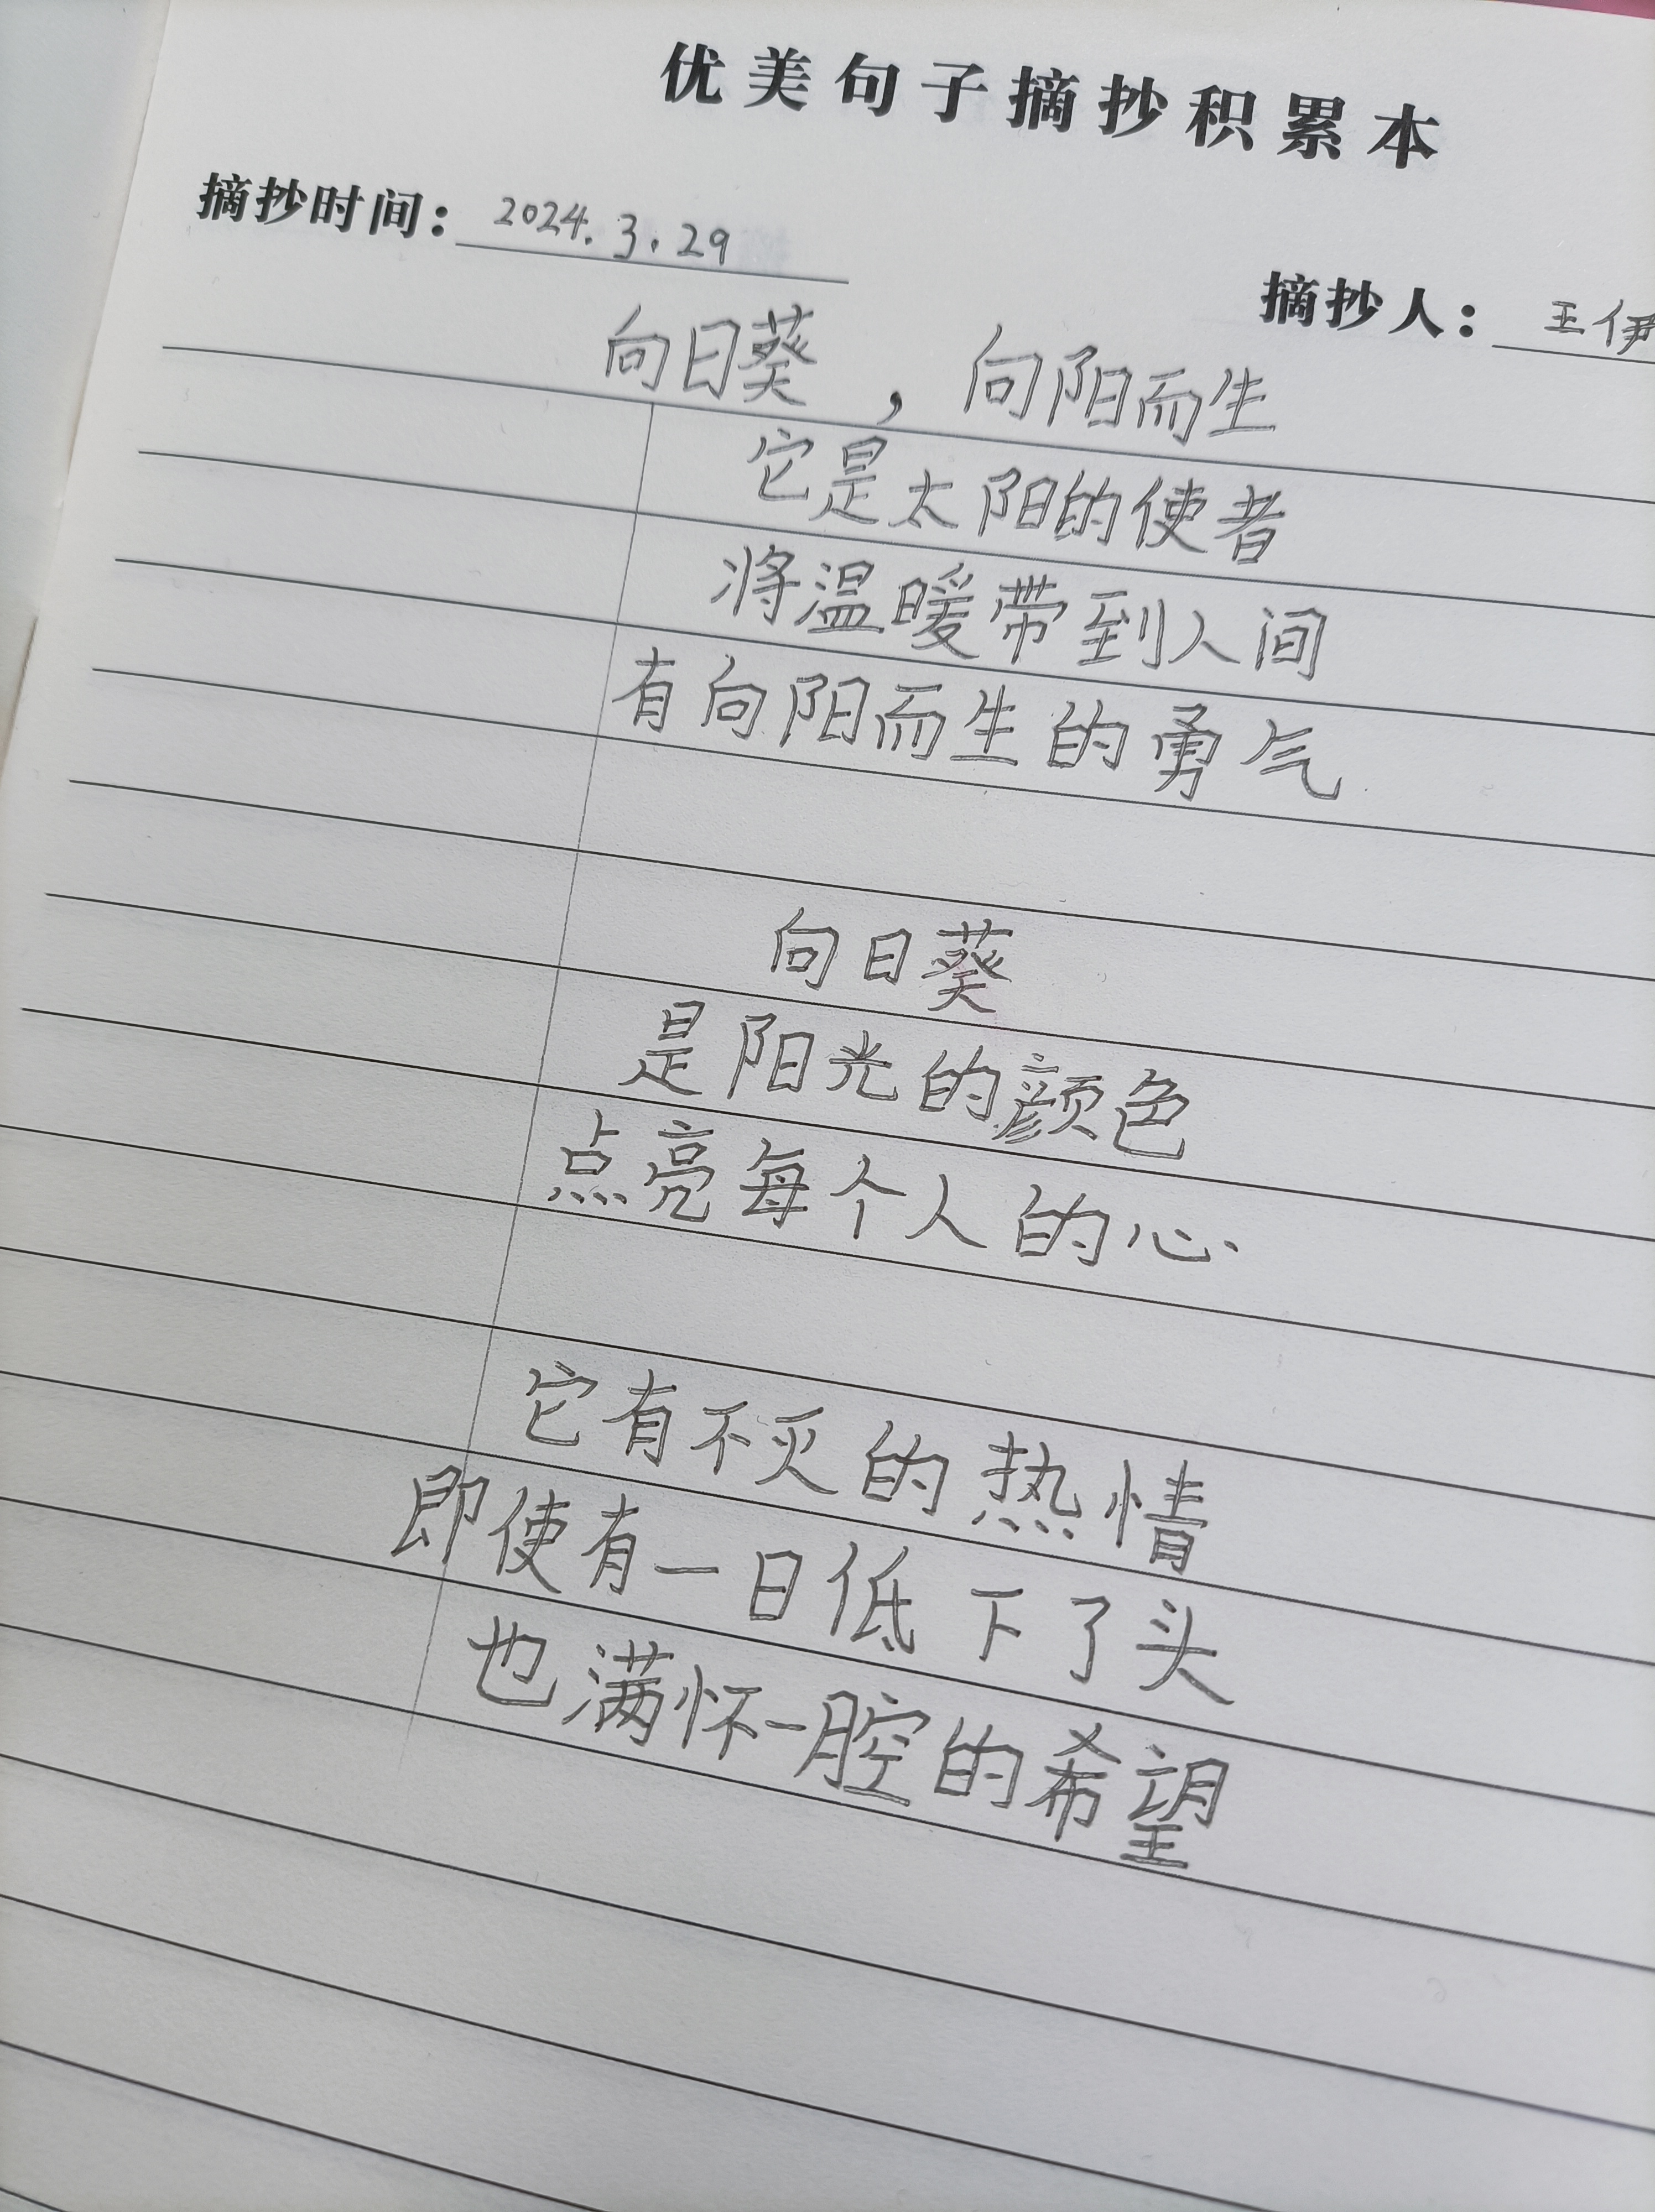 优美句子摘抄积累本
摘抄时间：2024.3.29
摘抄人：王伊
向日葵，向阳而生
它是太阳的使者
将温暖带到人间
有向阳而生的勇气
向日葵
是阳光的颜色
点亮每个人的心
它有不灭的热情
即使有一日低下了头
也满怀一腔的希望